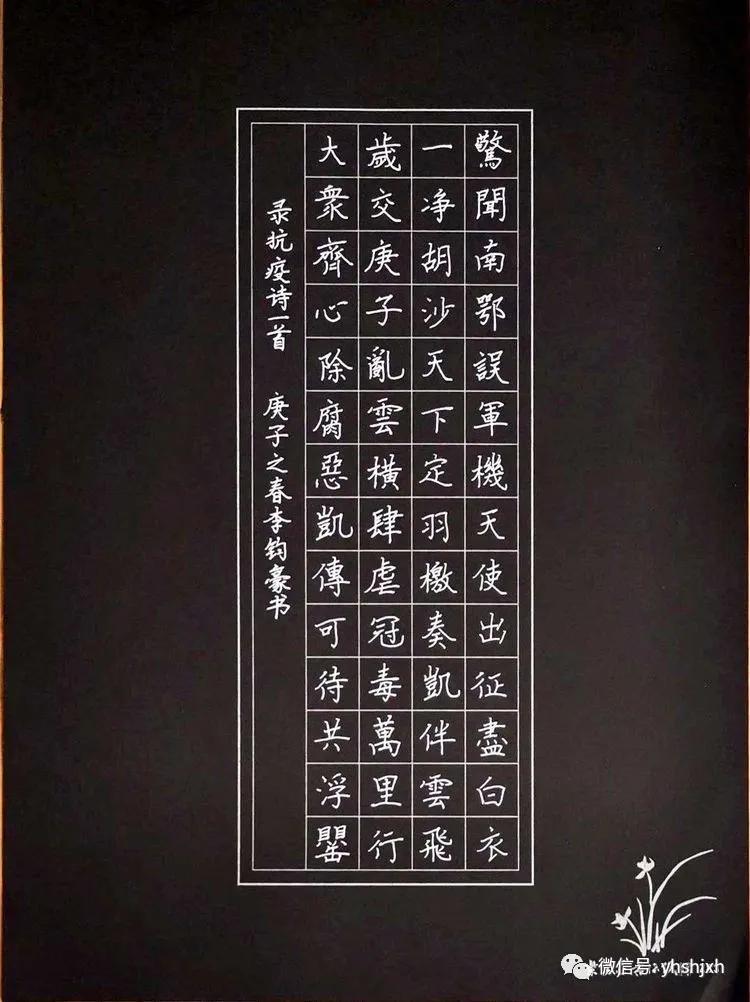 驚聞南鄂誤軍機天使出征盡白衣
一净胡沙天下定羽檄奏凱伴雲飛
歲交庚子亂雲橫肆虐冠毒萬里行
大衆齊心除腐惡凱傳可待共浮罌
录抗疫诗一首 庚子之春李钧豪书
微信号: yhshjxh